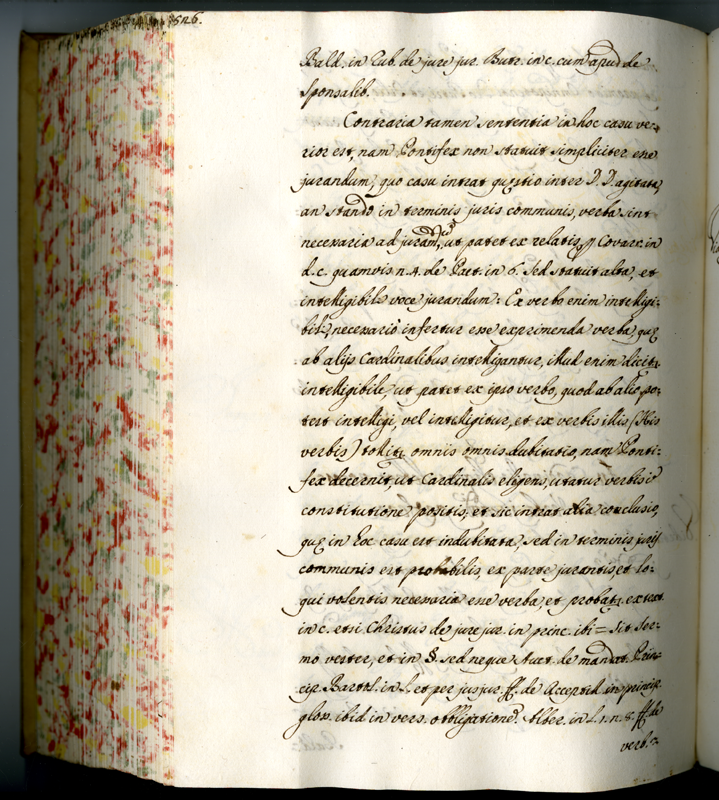 526.
Bald. in Rub. de jure jur. Butr. in c. cum apud de
Sponsalib.
Contraria tamen sententia in hoc casu ve-
rior est, nam Pontifex non statuit simpliciter esse
jurandum, quo casu intrat quęstio inter D.D. agitata,
an stando in terminis juris communis, verba sint
necessaria ad juram, ut patet ex relatis Covarr. in
d. c. quamvis n. 4. de Pact. in 6. sed statuit alta, et
intelligibili voce jurandum: Ex verbo enim intelligi-
bili, necessario infertur esse exprimenda verba, quę
ab alijs Cardinalibus intelligantur, illud enim dicit.
intelligibile, ut patet ex ipso verbo, quod ab alio po-
test intelligi, vel intelligitur, et ex verbis illis (His
verbis) tollit. omnis omnis dubitatio, nam Ponti-
fex decernit, ut Cardinalis eligens, utatur verbis i
constitutione positis, et sic intrat alia conclusio,
quę in hoc casu est indubitata, sed in terminis juris
communis est probabilis, ex parte jurantis, et lo-
qui volentis necessaria esse verba, et probat. ex text.
in c. etsi Christus de jure jur. in princ. ibi = Sit ser-
mo vester, et in §. sed neque Auct. de mandat. Prin-
cip. Bartol. in l. et per jusjur. ff. de Acceptil. in princip.
glos. ibid. in vers. obbligatione. Alber. in l. 1. n. 8. ff. de
verb.